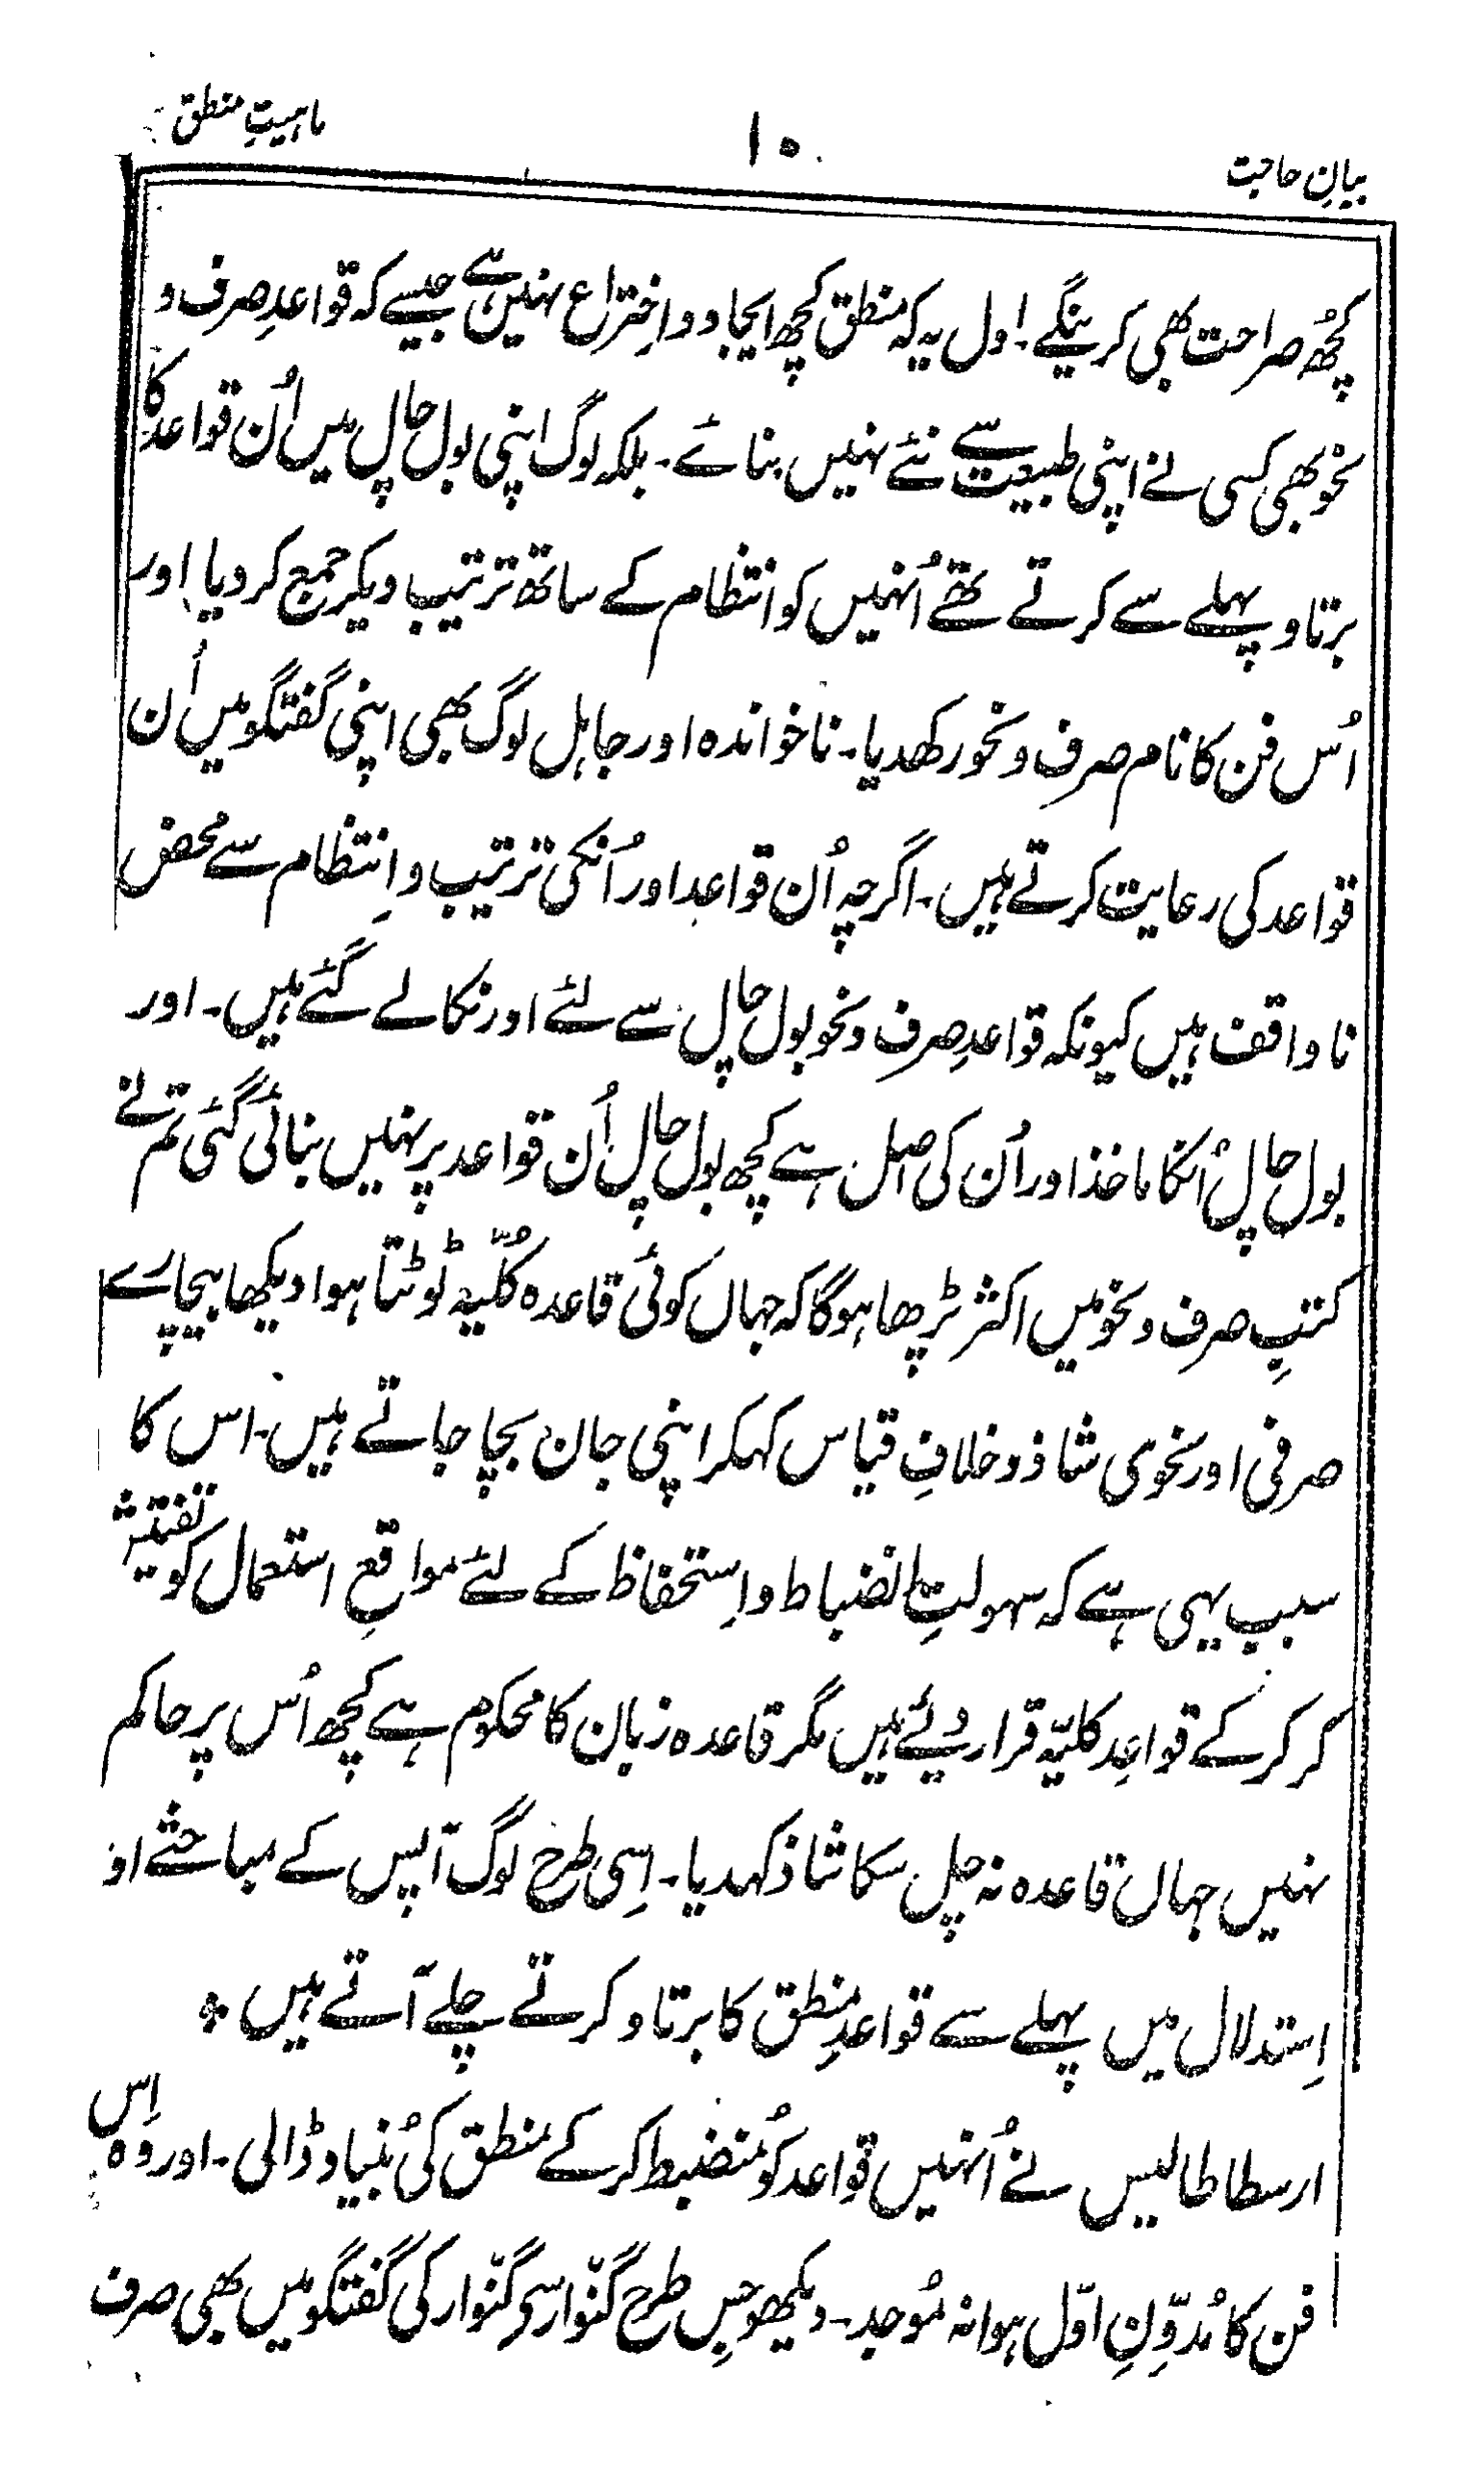 بیانِ حاجت
۱۰
ماہیتِ منطق
کچُھ صراحت بھی کرینگے۔ اول یہ کہ منطق کچھ ایجاد و اِختراع نہیں ہے جیسے کہ قواعدِ صرف و
نحو بھی کسی نے اپنی طبیعت سے نئے نہیں بنائے۔ بلکہ لوگ اپنی بول چال میں اُن قواعد کا
برتاو پہلے سے کرتے تھے اُنہیں کو انتظام کے ساتھ ترتیب دیکر جمع کر دیا اور
اُس فن کا نام صرف و نحو رکھدیا۔ ناخواندہ اور جاہل لوگ بھی اپنی گفتگو میں اُن
قواعد کی رعایت کرتے ہیں۔ اگرچہ اُن قواعد اور اُنکی ترتیب و اِنتظام سے محض
ناواقف ہیں کیونکہ قواعدِ صرف و نحو بول چال سے لئے اور نکالے گئے ہیں۔ اور
بول چال اُنکا ماخذ اور اُن کی اصل ہے کچھ بول چال اُن قواعد پر نہیں بنائی گئی تم نے
کتبِ صرف و نحو میں اکثر پڑھا ہوگا کہ جہاں کوئی قاعدہ کُلّیہ ٹوٹتا ہوا دیکھا بیچارے
صرفی اور نحوی شاذ و خلافِ قیاس کہکر اپنی جان بچا جاتے ہیں۔ اس کا
سبب یہی ہے کہ سہولتِ انضباط و اِستحفاظ کے لئے مواقعِ استعمال کو تفتیش
کر کر کے قواعِد کلیّہ قرار دیئے ہیں مگر قاعدہ زبان کا محکوم ہے کچھ اُس پر حاکم
نہیں جہاں قاعدہ نہ چل سکا شاذ کہدیا۔ اِسی طرح لوگ آپس کے مباحثے اور
اِستدلال میں پہلے سے قواعدِ منطق کا برتاو کرتے چلے آتے ہیں ٭
ارسطاطالیس نے اُنہیں قواعد کو مُنضبط کر کے منطق کی بُنیاد ڈالی۔ اور وہ اِس
فن کا مُدوِّنِ اوّل ہوا نہ مُوجد۔ دیکھو جِس طرح گنّوار سے گنّوار کی گفتگو میں بھی صرف